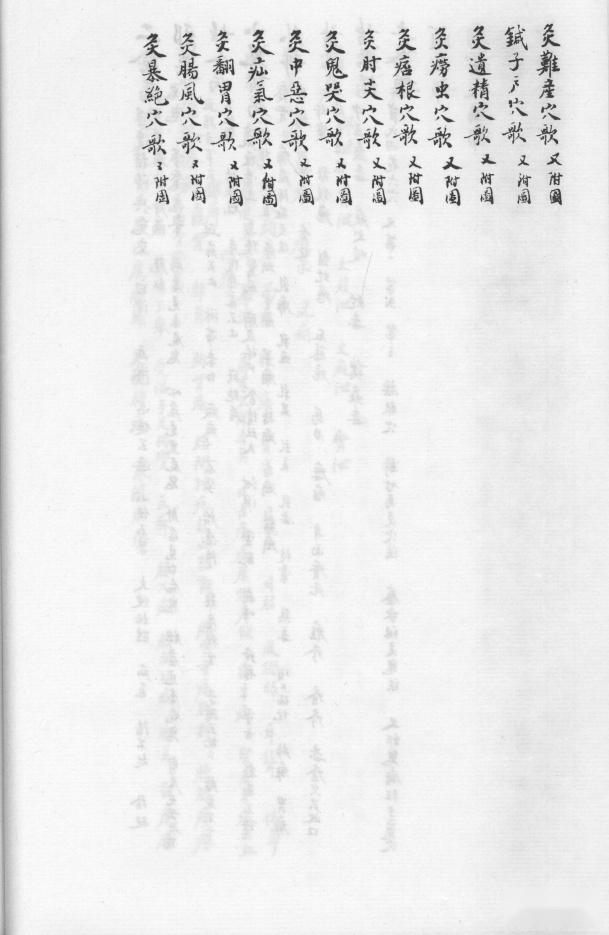 灸難產穴歌 又附圖
鍼子戶穴歌 又附圖
灸遺精穴歌 又附圖
灸癆虫穴歌 又附圖
灸痞根穴歌 又附圖
灸肘尖穴歌 又附圖
灸鬼哭穴歌 又附圖
灸中惡穴歌 又附圖
灸疝氣穴歌 又附圖
灸翻胃穴歌 又附圖
灸腸風穴歌 又附圖
灸暴絶穴歌 又附圖